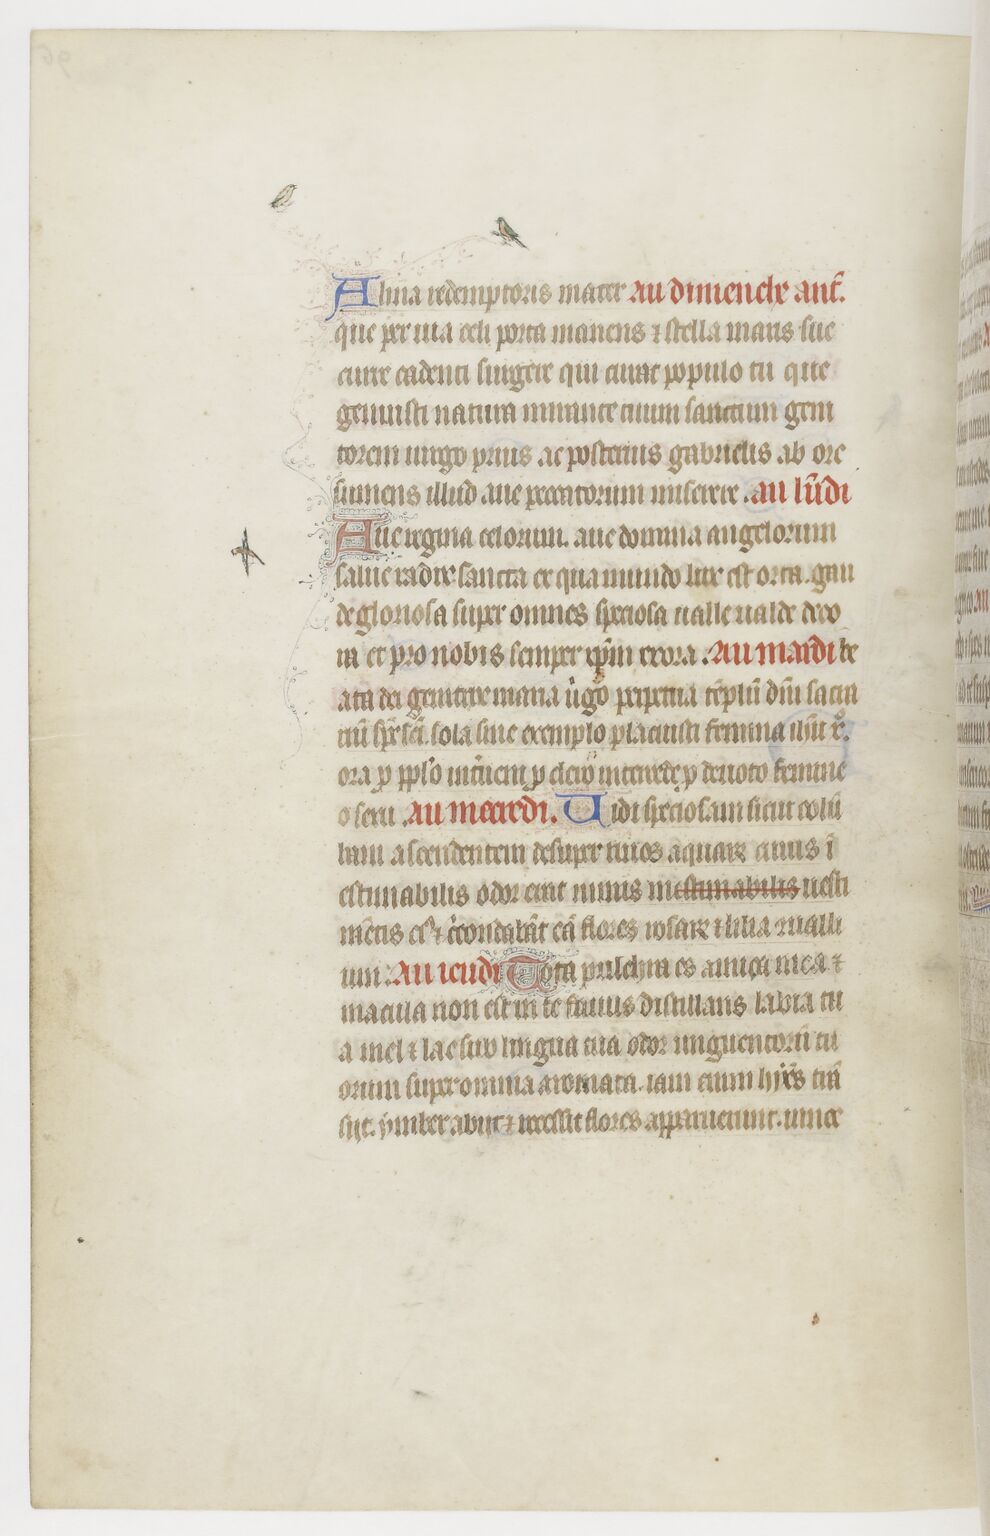 Alma redemptoris mater Au dimenche ant̃.
que per uia celi porta manens ⁊ stella maris suc
curre cadenti surgere qui curat populo tu que
genuisti natura mirante tuum sanctum geni
torem uirgo prius ac posterius gabrielis ab ore
sumens illud aue peccatorum miserere. au lũdi
Aue regina celorum. aue domina angelorum
salue radix sancta ex qua mundo lux est orta. gau
de gloriosa super omnes speciosa ualle ualde deco
ra et pro nobis semper xp̃m exora. Au mardi be
ata dei genitrix maria uĩgo perpetua tẽplũ dñi sacra
riũ sp̃s sc̃i. sola sine exemplo placuisti femina ihũ x̃.
ora p pplo interueni p clero intercede p deuoto femine
o sexu. Au mecredi. Uidi speciosam sicut colũ
bam ascendentem desuper riuos aquarꝝ cuius ĩ
estimabilis odor erat nimis inestimabilis uesti
mẽtis eiꝰ ⁊ cĩcondabãt eã flores rosarꝝ ⁊ lilia ꝯualli
um. Au ieudi Tota pulchra es amica mea ⁊
macula non est in te fauus distillans labia tu
a mel ⁊ lac sub lingua tua odor unguentorũ tu
orum super omnia aromata. iam enim hyẽs trã
sijt. ymber abijt ⁊ recessit flores apparuerunt. uinee